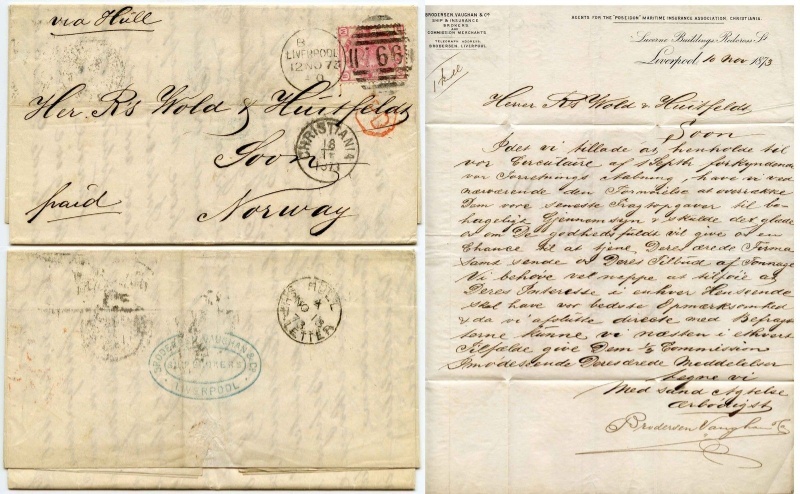 via Hüll
LIVERPOOL
12 NO 73
466
Her. R's Wold & Huitfeldt
CHRISTIANIA
18
11
1873
Soon
paid
Norway
HULL
NO 13
73
LETTER
BRODERSEN VAUGHAN & Co
SHIP BROKERS
LIVERPOOL
BRODERSEN, VAUGHAN & Co
SHIP & INSURANCE
BROKERS
AND
COMMISSION MERCHANTS.
TELEGRAPH ADDRESS,
BRODERSEN, LIVERPOOL.
AGENTS FOR THE "POSEIDON" MARITIME INSURANCE ASSOCIATION, CHRISTIANIA.
Lucerne Buildings, Redcross St
Liverpool, 10 Nov 1873
Herrer R's Wold & Huitfeldt
Soon
Idet vi tillade os, henholde til
vor Circulaire af 1 Septb. forkyndende
vor Forretnings Aabning, have vi ved
nærværende den Fornøielse at overrække
Dem vore seneste Fragtopgaver til be-
hageligt Gjennomsyn & skulde det glæde
os om De godhedsfuldt vil give os en
Chance til at tjene Deres ærede Firma
samt sende os Deres Tilbud af Tonnage
Vi behøve vel neppe at tilføie at
Deres Interesse i enhver Henseende
skal have vor bedste Opmærksomhed
& da vi afslutte directe med Befragt
terne kunne vi næsten i ethvert
Tilfælde give Dem ⅓ Commission
Imødeseende Deres ærede Meddelelser
tegne vi
Med sand Agtelse
ærbødigst
Brodersen Vaughan & Co